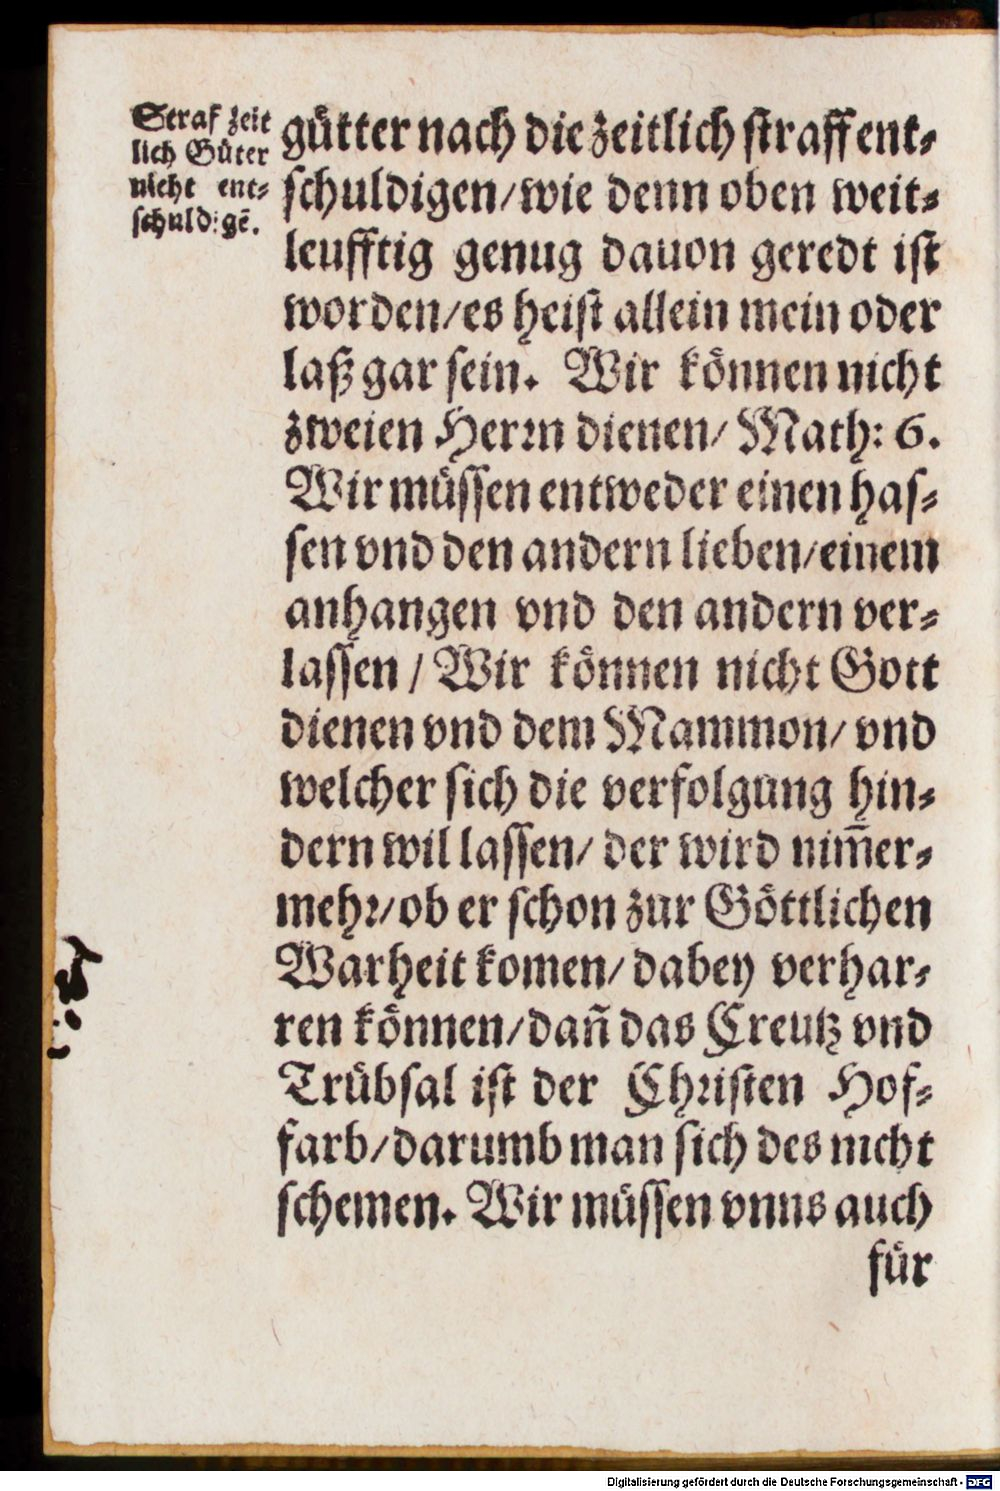 Straf zeit
lich Güter
nicht ent-
schuldigē.
gütter nach die zeitlich straff ent-
schuldigen/wie denn oben weit-
leufftig genug dauon geredt ist
worden/es heist allein mein oder
laß gar sein. Wir können nicht
zweien Herrn dienen/ Math: 6.
Wir müssen entweder einen has-
sen vnd den andern lieben/einem
anhangen vnd den andern ver-
lassen / Wir können nicht Gott
dienen vnd dem Mammon/ vnd
welcher sich die verfolgung hin-
dern wil lassen/ der wird nim̄er-
mehr/ob er schon zur Göttlichen
Warheit komen/ dabey verhar-
ren können/dañ das Creutz vnd
Trübsal ist der Christen Hof-
farb/darumb man sich des nicht
schemen. Wir müssen vnns auch
für
Digitalisierung gefördert durch die Deutsche Forschungsgemeinschaft - DFG